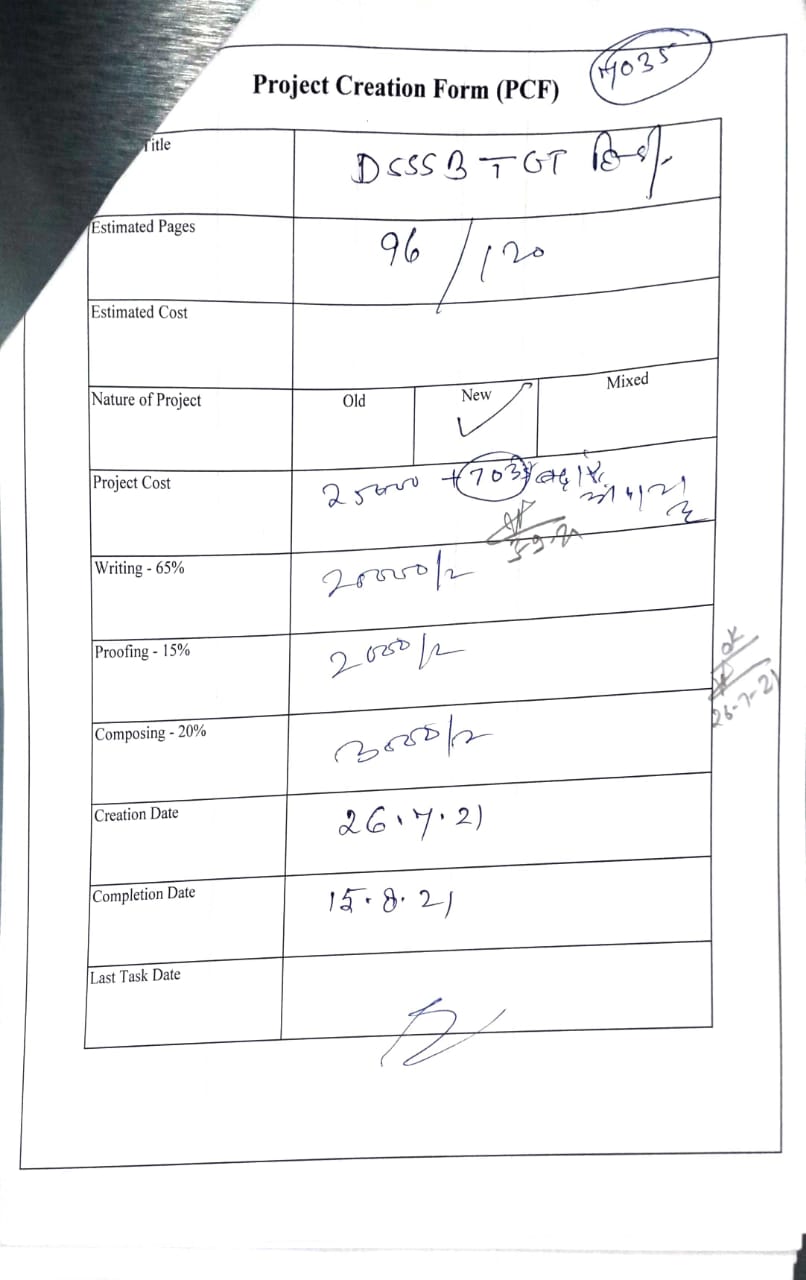 Project Creation Form (PCF)
7035
Title DSSSB TGT हिन्दी
Estimated Pages 96 / 120
Estimated Cost
Nature of Project Old New ✓ Mixed
Project Cost 25000 + 7035
Writing - 65% 20000/-
Proofing - 15% 2000/-
Composing - 20% 3000/-
ok
26-7-21
Creation Date 26.7.21
Completion Date 15.8.21
Last Task Date